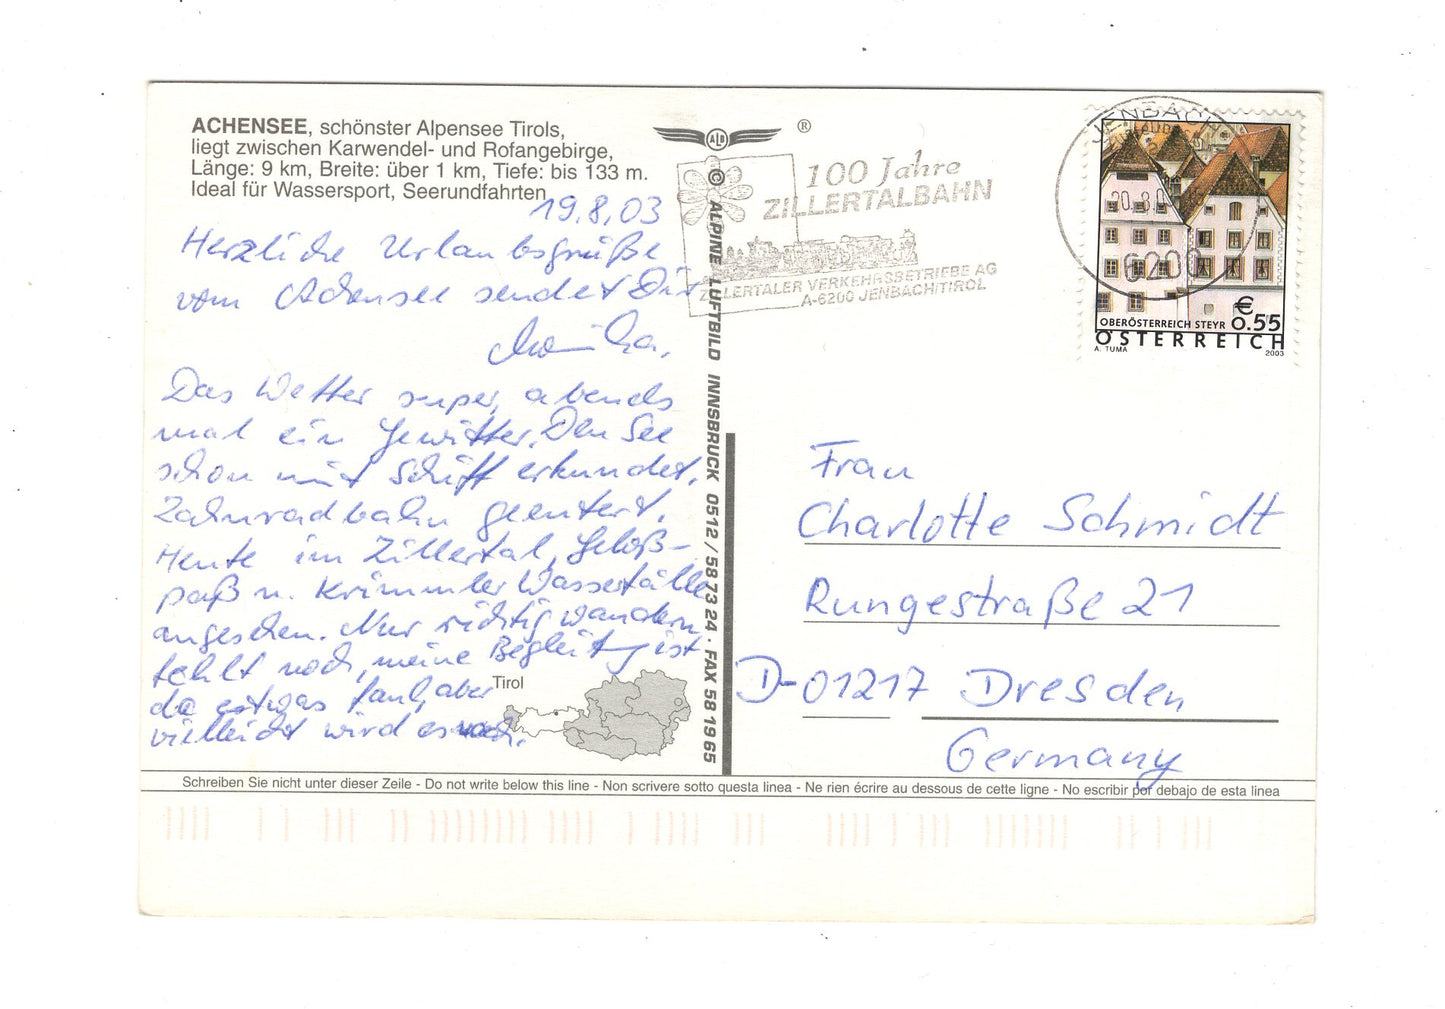 ACHENSEE, schönster Alpensee Tirols,
liegt zwischen Karwendel- und Rofangebirge,
Länge: 9 km, Breite: über 1 km, Tiefe: bis 133 m.
Ideal für Wassersport, Seerundfahrten
19.8.03
Herzliche Urlaubsgrüße
vom Achensee sendet Dir
Monika.
Das Wetter super, abends
mal ein Gewitter. Den See
schon mit Schiff erkundet,
Zahnradbahn geentert.
Heute im Zillertal, Gerloß-
paß u. Krimmler Wasserfälle
angesehen. Nur richtig wandern
fehlt noch, meine Begleitung ist
da etwas faul, aber
vielleicht wird es noch.
Tirol
ALB
®
© ALPINE LUFTBILD INNSBRUCK 0512 / 58 73 24 · FAX 58 19 65
100 Jahre
ZILLERTALBAHN
ZILLERTALER VERKEHRSBETRIEBE AG
A-6200 JENBACH/TIROL
JENBACH
20.8.0
6200
€
0.55
OBERÖSTERREICH STEYR
ÖSTERREICH
A. TUMA
2003
Frau
Charlotte Schmidt
Rungestraße 21
D-01217 Dresden
Germany
Schreiben Sie nicht unter dieser Zeile - Do not write below this line - Non scrivere sotto questa linea - Ne rien écrire au dessous de cette ligne - No escribir por debajo de esta linea